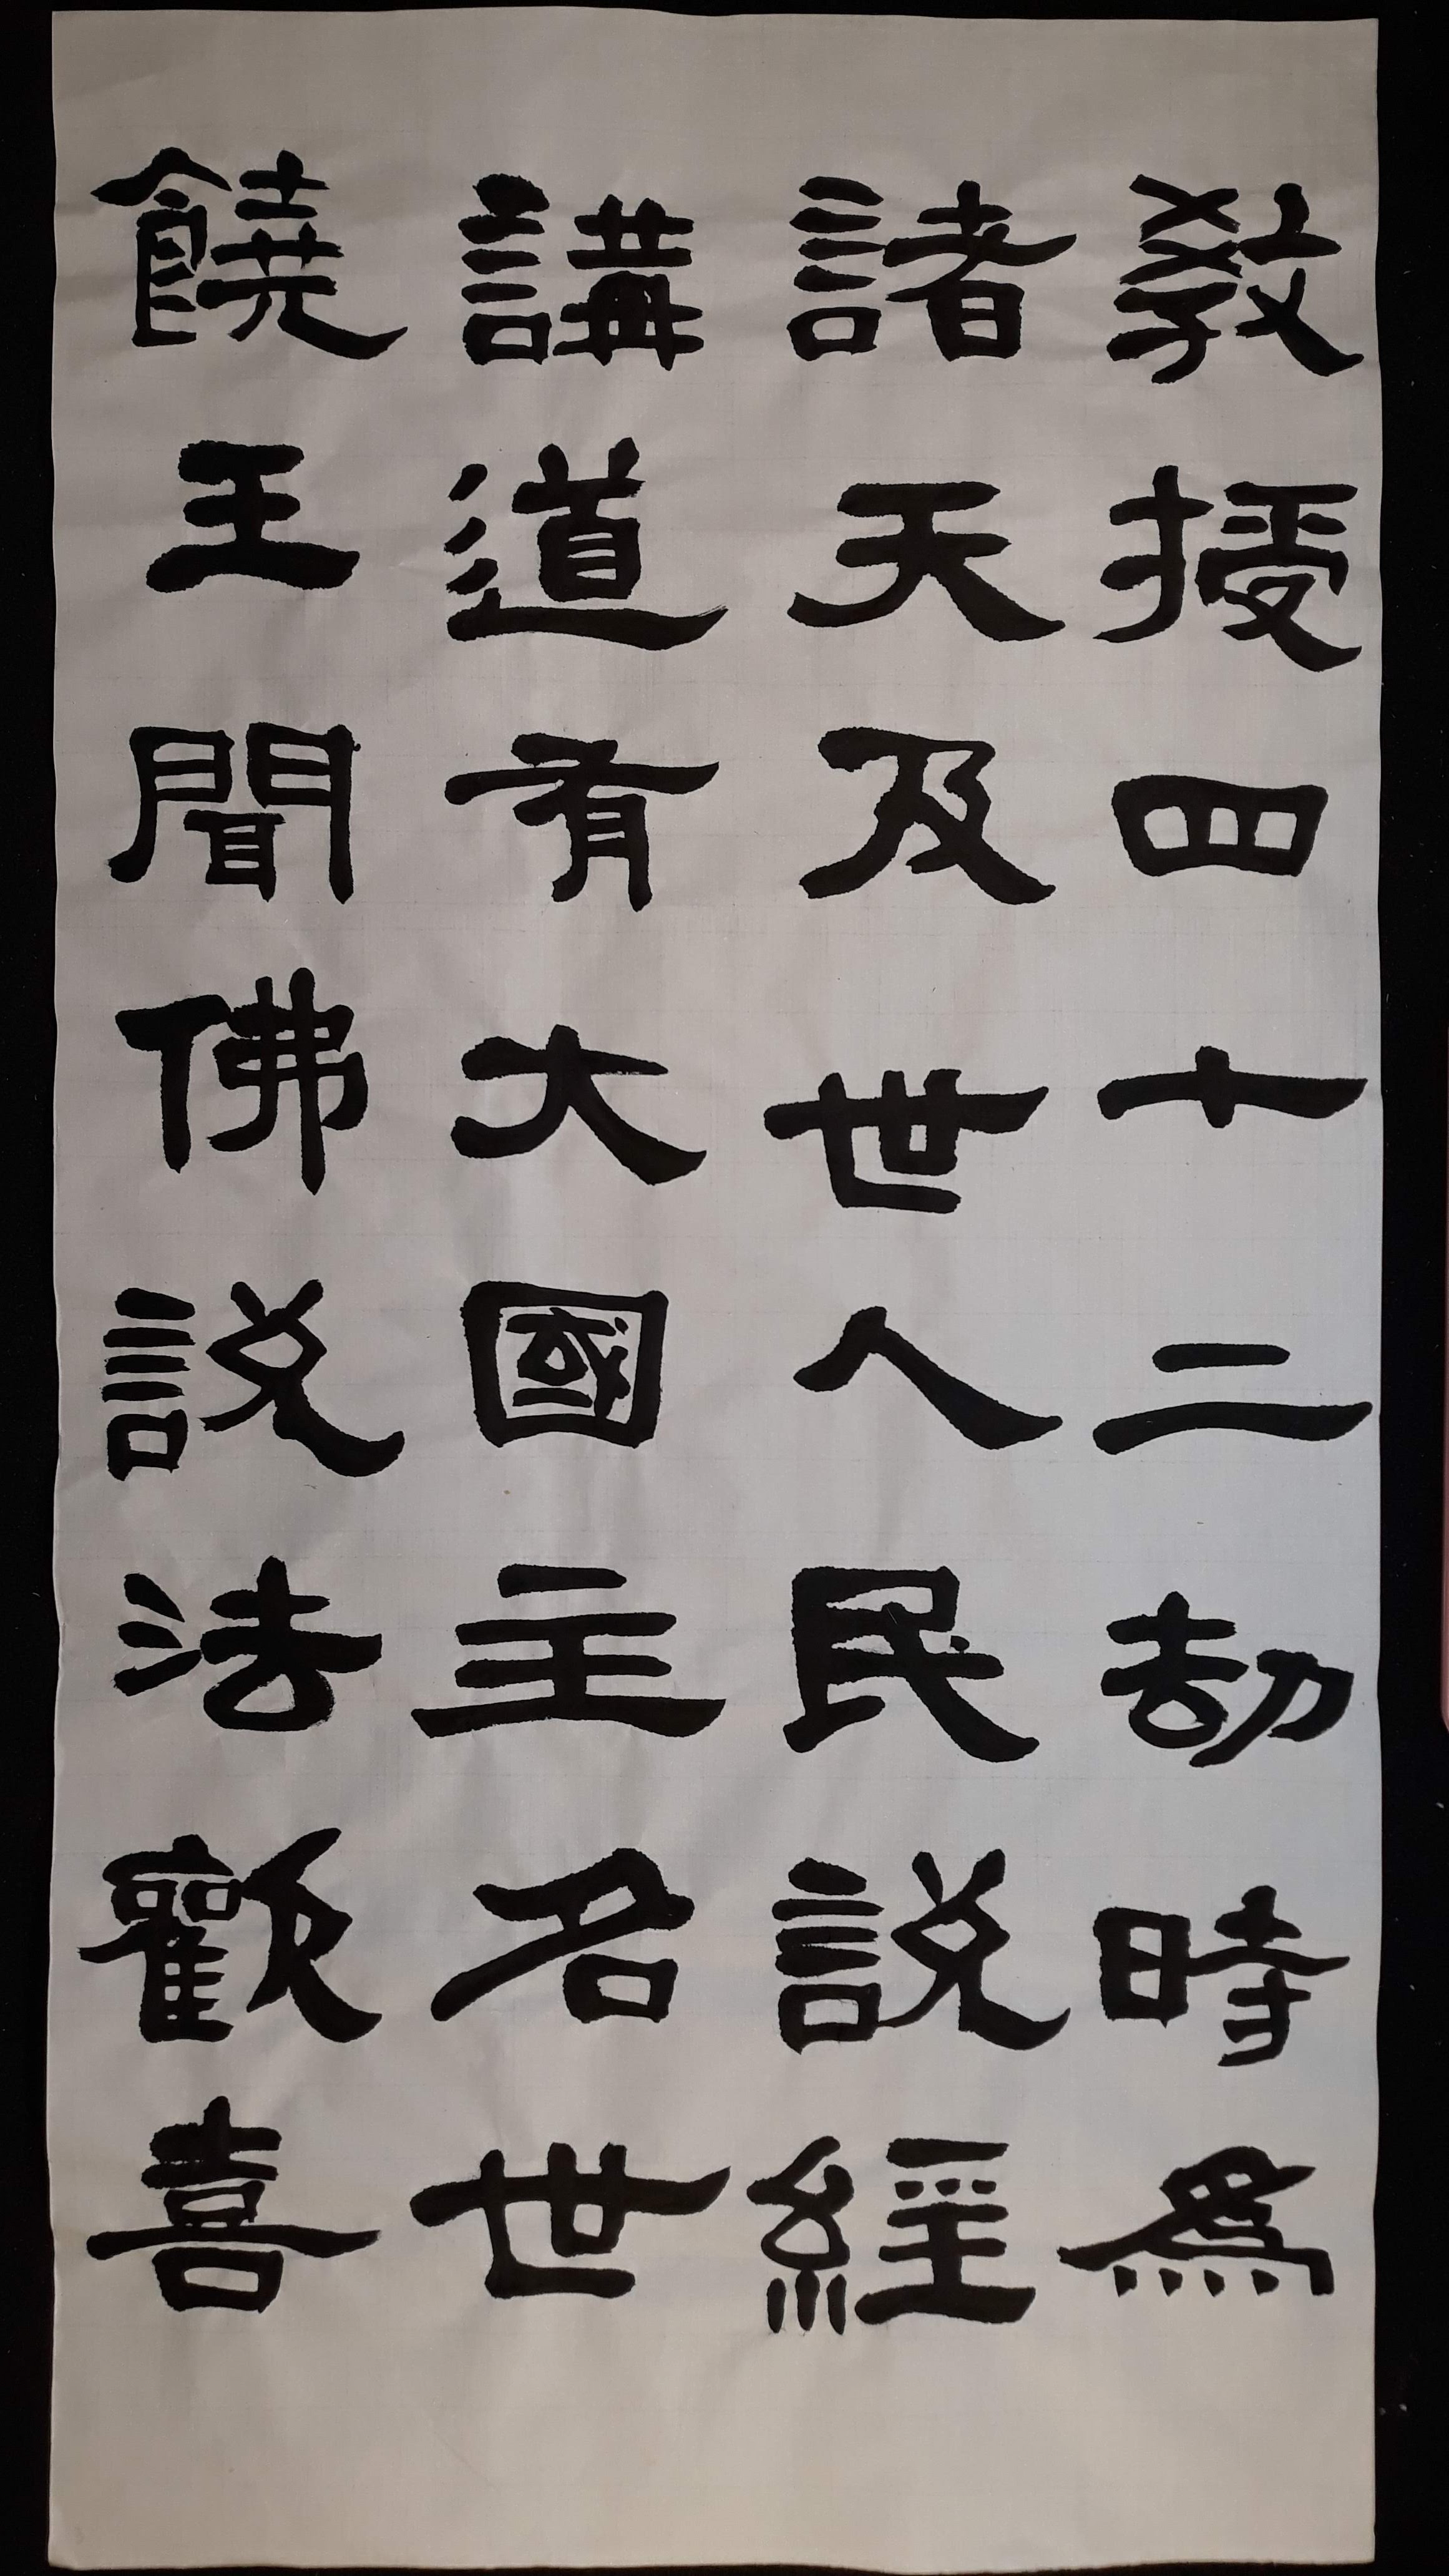 教授四十二劫時為
諸天及世人民說經
講道有大國主名世
饒王聞佛說法歡喜